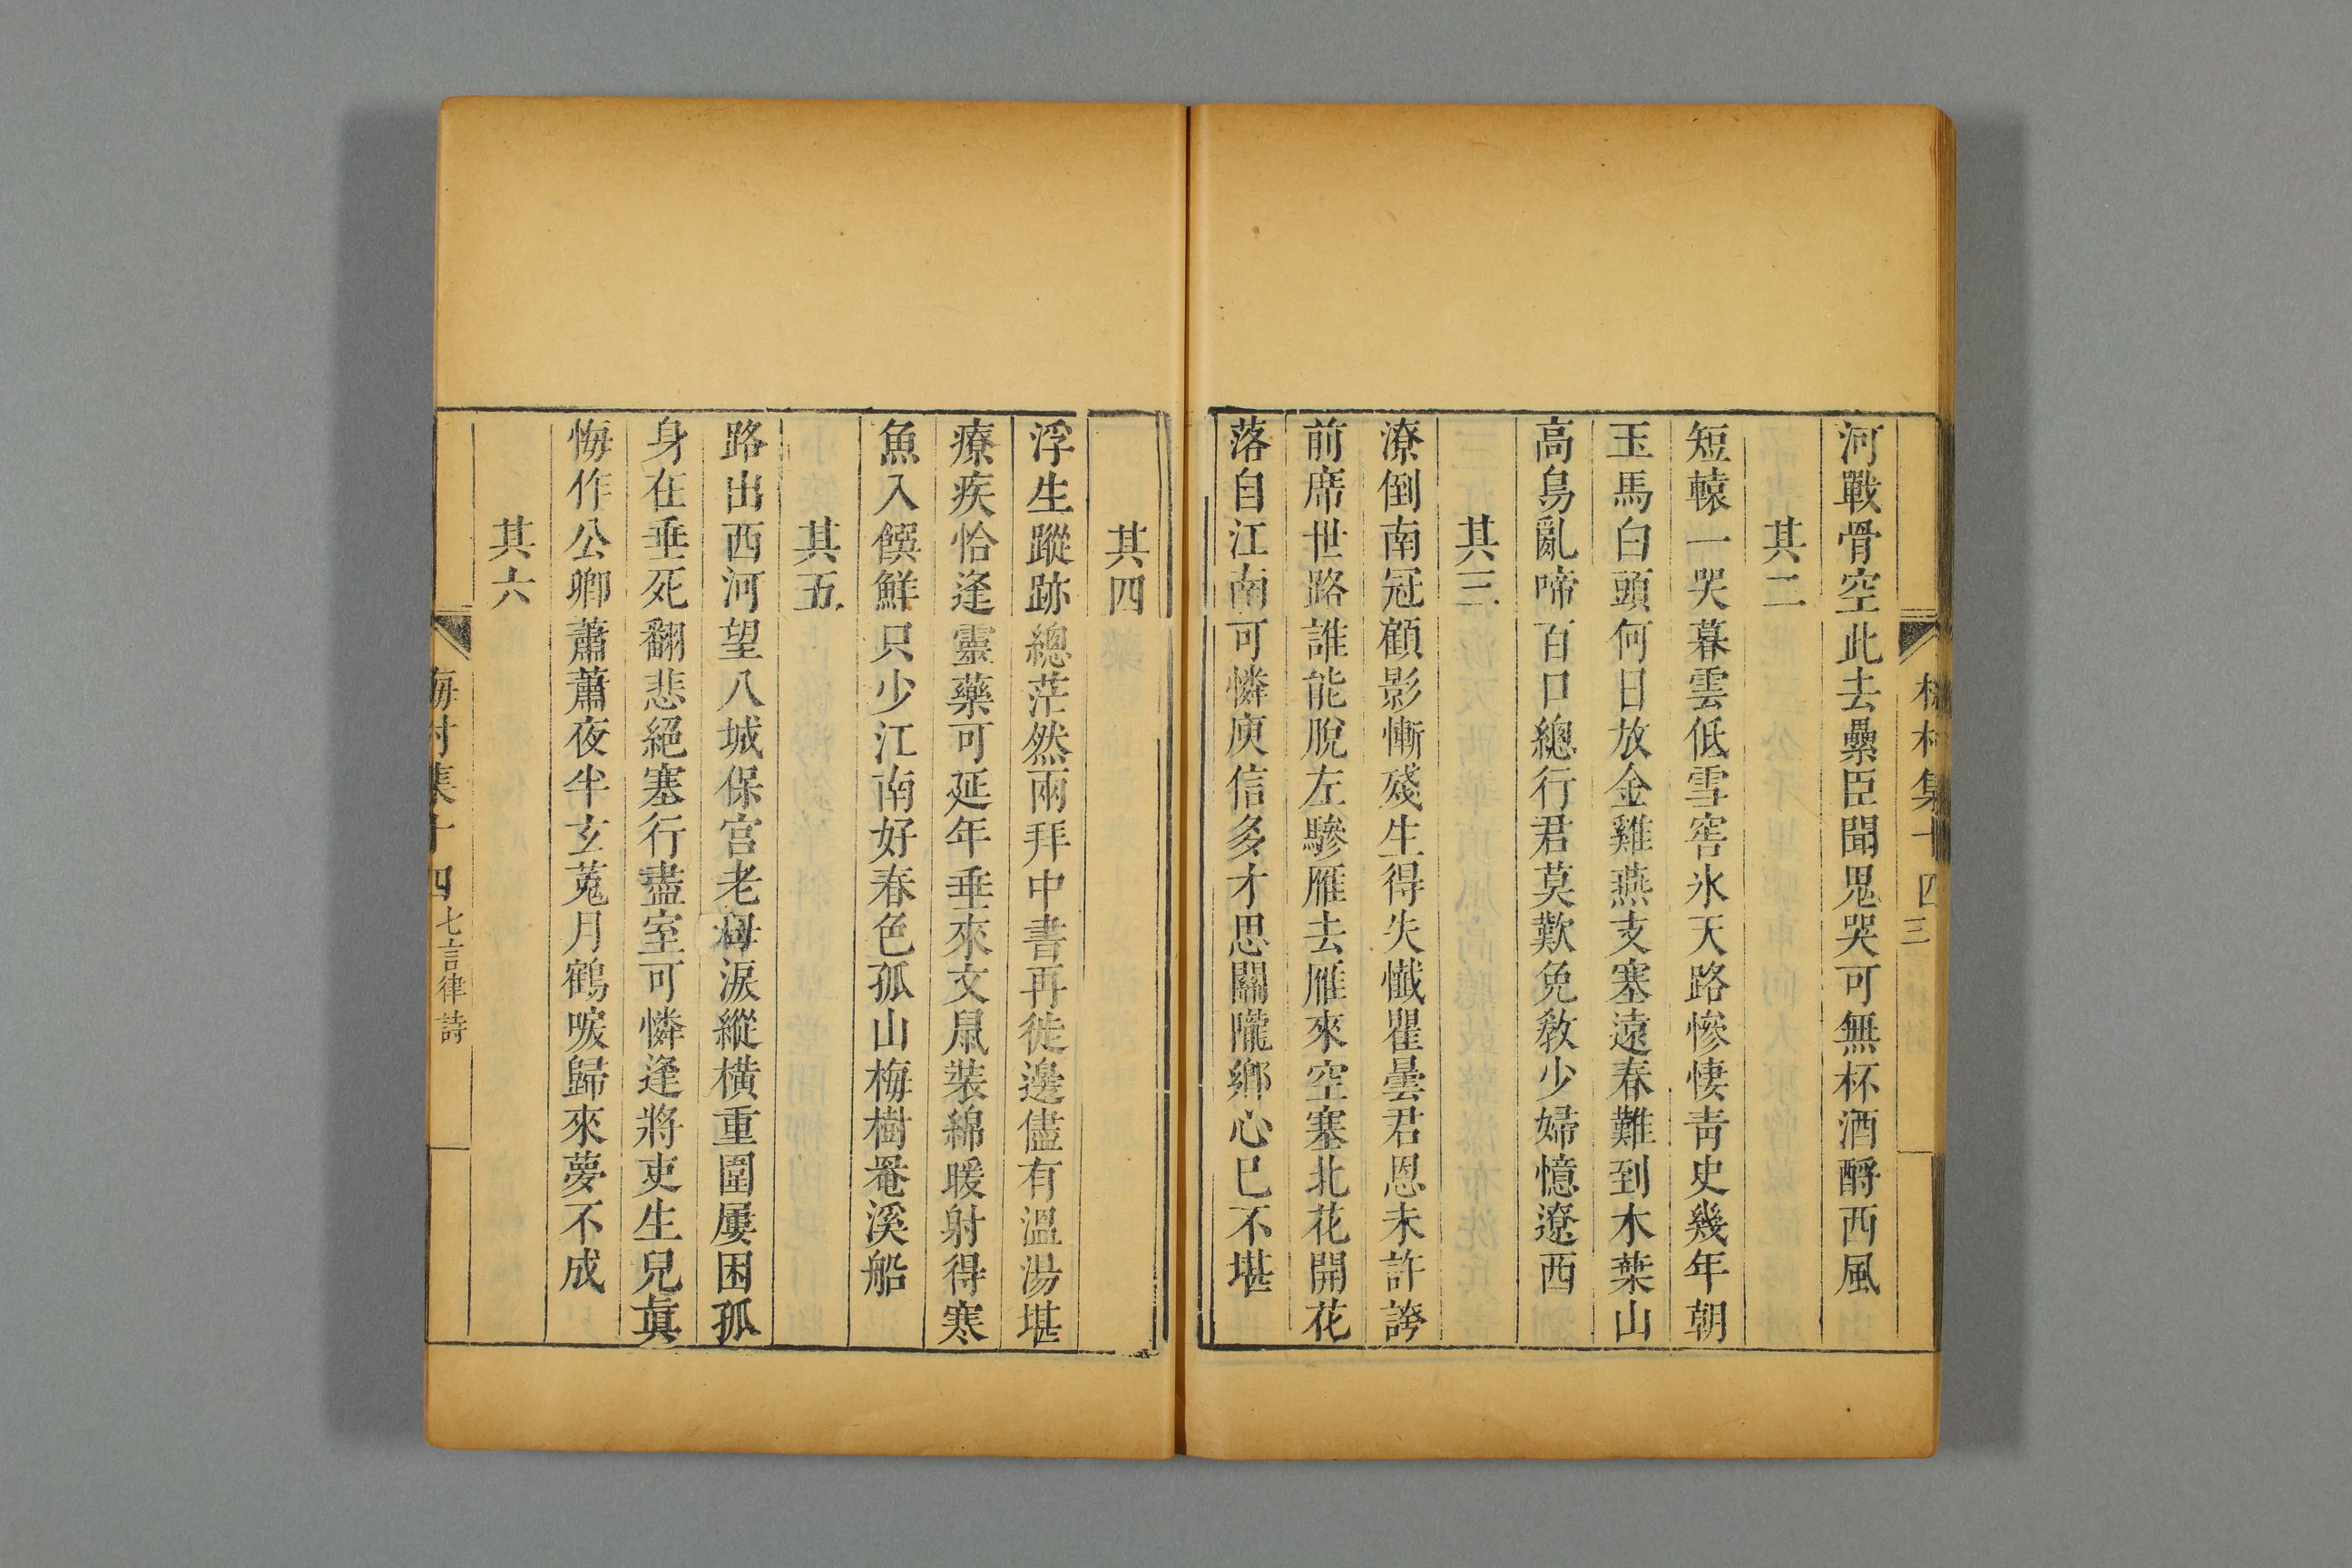 河戰骨空此去纍臣聞鬼哭可無杯酒酹西風
其二
短轅一哭暮雲低雪窖氷天路慘悽靑史幾年朝
玉馬白頭何日放金雞燕支塞遠春難到木葉山
高鳥亂啼百口總行君莫歎免敎少婦憶遼西
其三
潦倒南冠顧影慚殘生得失懺瞿曇君恩未許誇
前席世路誰能脫左驂雁去雁來空塞北花開花
落自江南可憐庾信多才思關隴鄉心已不堪
梅村集十四 三
其四
浮生蹤跡總茫然兩拜中書再徙邊儘有溫湯堪
療疾恰逢靈藥可延年垂來文鼠裝綿暖射得寒
魚入饌鮮只少江南好春色孤山梅樹罨溪船
其五
路出西河望八城保宮老母淚縱橫重圍屢困孤
身在垂死翻悲絕塞行盡室可憐逢將吏生兒真
悔作公卿蕭蕭夜半玄菟月鶴唳歸來夢不成
其六
梅村集十四 七言律詩